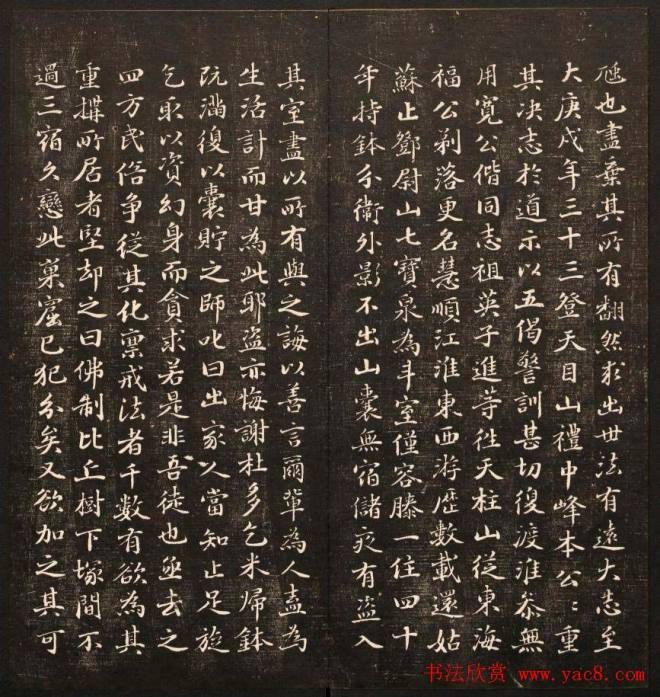 虺也盡棄其所有翻然求出世法有遠大志至
大庚戌年三十三登天目山禮中峰本公〻重
其决志於道示以五偈警訓甚切復渡淮叅無
用寬公偕同志祖英子進等往天柱山從東海
福公剃落更名慧順江淮東西游歷數載還姑
蘇止鄧尉山七寶泉為斗室僅容膝一住四十
年持鉢分衛外影不出山囊無宿儲夜有盜入
其室盡以所有與之誨以善言爾輩為人盍為
生活計而甘為此耶盜亦悔謝杜多乞米帰鉢
既滿復以囊貯之師叱曰出家人當知止足旋
乞取以資幻身而貪求若是非吾徒也亟去之
四方民俗争從其化禀戒法者千數有欲為其
重搆所居者堅却之曰佛制比丘樹下塚間不
過三宿久戀此菓窟已犯分矣又欲加之其可
书法欣赏 www.yac8.com